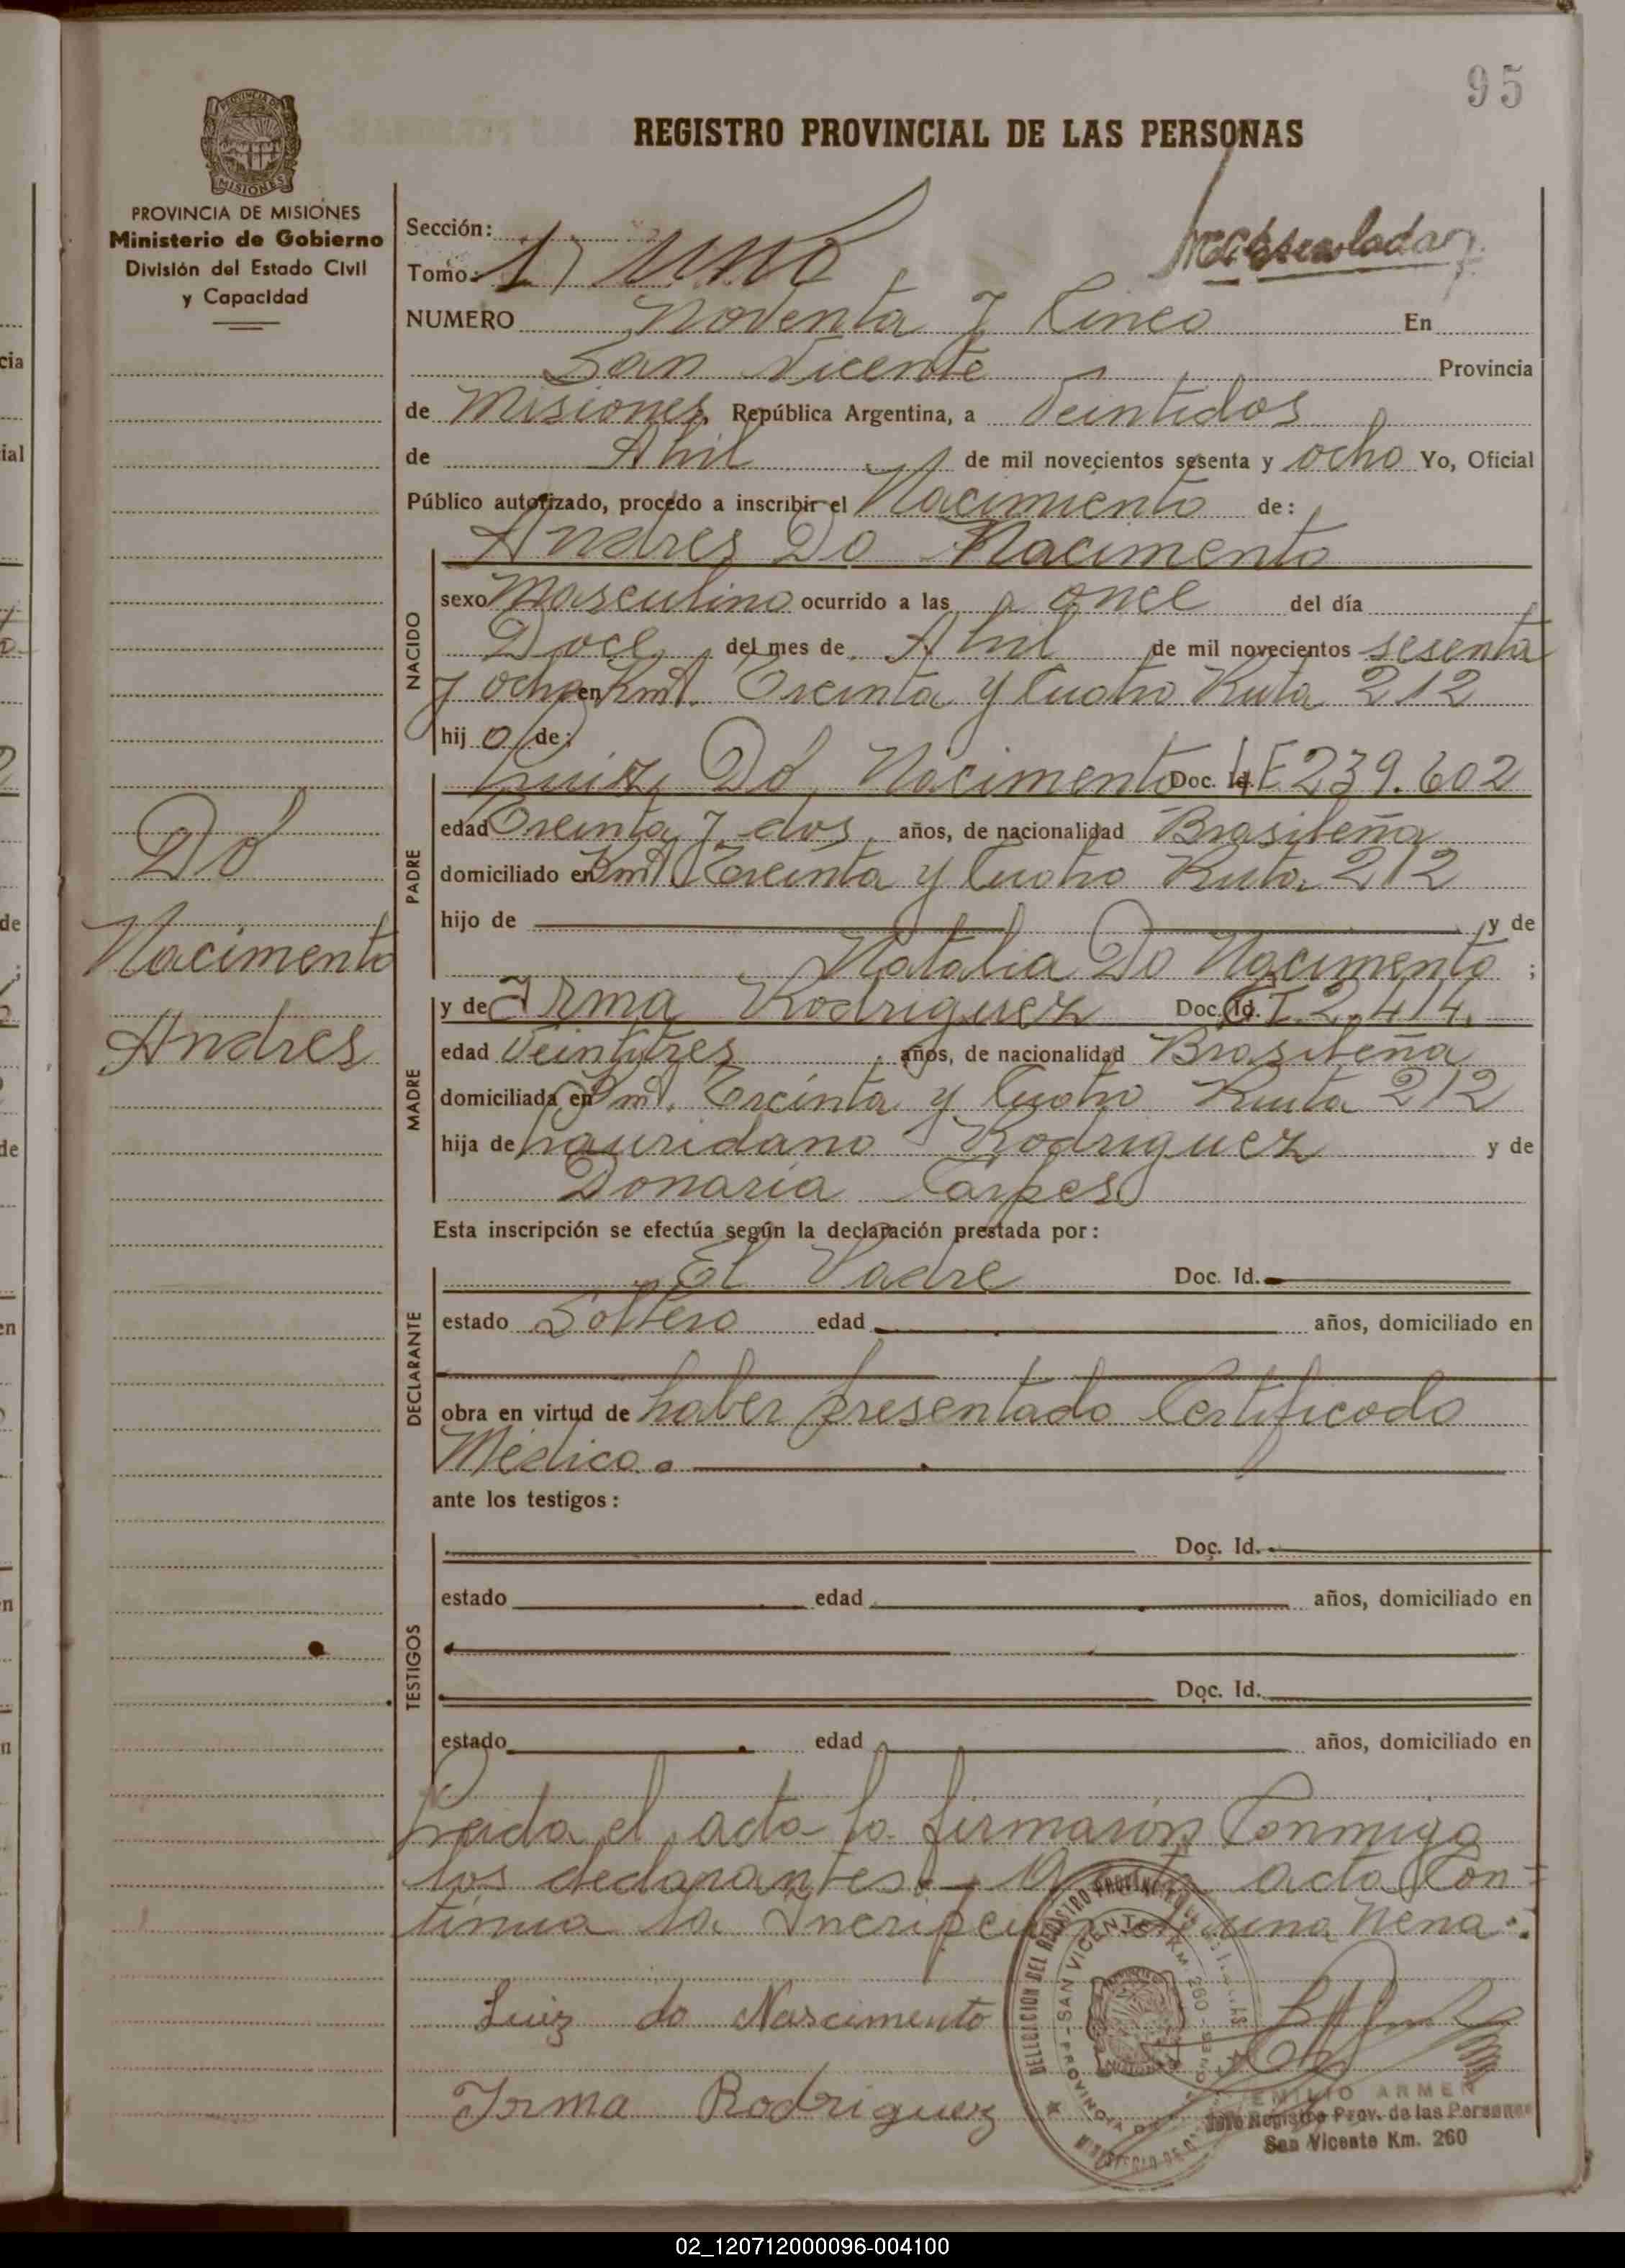 95
REGISTRO PROVINCIAL DE LAS PERSONAS
PROVINCIA DE MISIONES
Ministerio de Gobierno
División del Estado Civil
y Capacidad
Sección:
Tomo: 1) uno
NUMERO Noventa y Cinco En
San Vicente Provincia
de Misiones República Argentina, a Veintidos
de Abril de mil novecientos sesenta y ocho Yo, Oficial
Público autorizado, procedo a inscribir el Nacimiento de:
Andres Do Nacimento
NACIDO
sexo Masculino ocurrido a las once del día
Doce del mes de Abril de mil novecientos sesenta
y ocho en Kmt. Treinta y Cuatro Ruta 212
hij o de:
PADRE
Luiz Do Nacimento Doc. Id. L E 239.602
edad Treinta y dos años, de nacionalidad Brasileña
domiciliado en Kmt. Treinta y Cuatro Ruta 212
hijo de y de
Natalia Do Nacimento ;
Do
Nacimento
Andres
MADRE
y de Irma Rodriguez Doc. Id. C I 2.414.
edad Veintitres años, de nacionalidad Brasileña
domiciliada en Kmt. Treinta y Cuatro Ruta 212
hija de Lauridano Rodriguez y de
Donaria Carpes
Esta inscripción se efectúa según la declaración prestada por:
DECLARANTE
El Padre Doc. Id.
estado Soltero edad años, domiciliado en
obra en virtud de haber presentado Certificado
Médico.
ante los testigos:
TESTIGOS
Doc. Id.
estado edad años, domiciliado en
Doc. Id.
estado edad años, domiciliado en
Leida el acta la firmaron Conmigo
los declarantes. - acta Con-
tinua la Incripcion de una Nena.
Luiz do Nascimento
Irma Rodriguez
DELEGACION DEL REGISTRO PROVINCIAL
SAN VICENTE KM. 260
EMILIO ARMEN
Jefe Registro Prov. de las Personas
San Vicente Km. 260
02_120712000096-004100